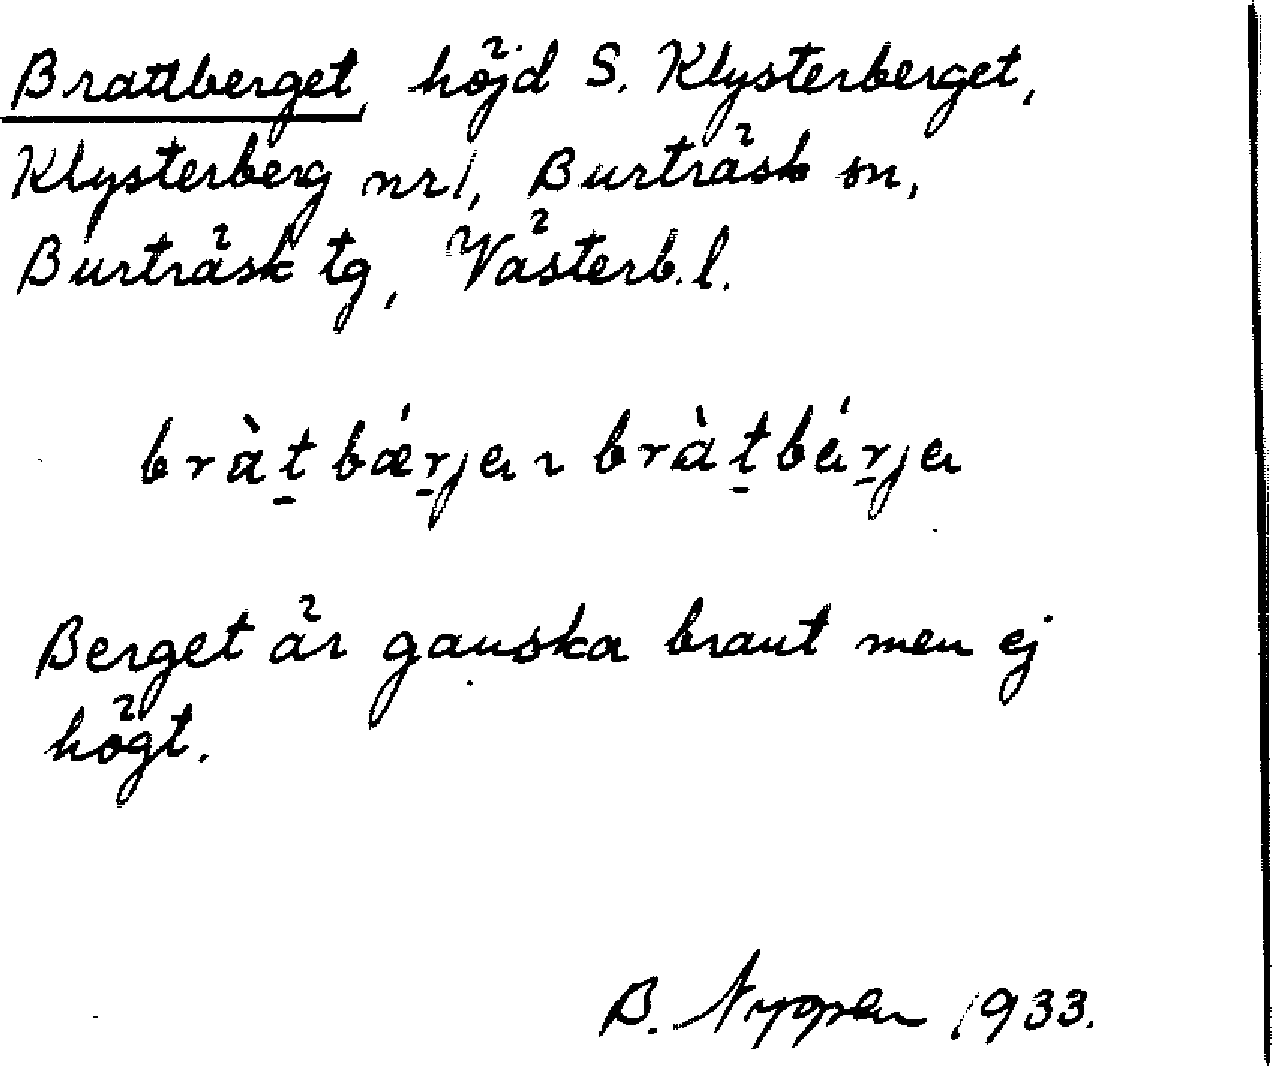 Brattberget, höjd S. Klysterberget,
Klysterberg nr 1, Burträsk sn,
Burträsk tg, Västerb. l.
bràt̠bǽr̠ja ~ bràt̠bár̠ja
Berget är ganska brant men ej
högt.
B. 1933.